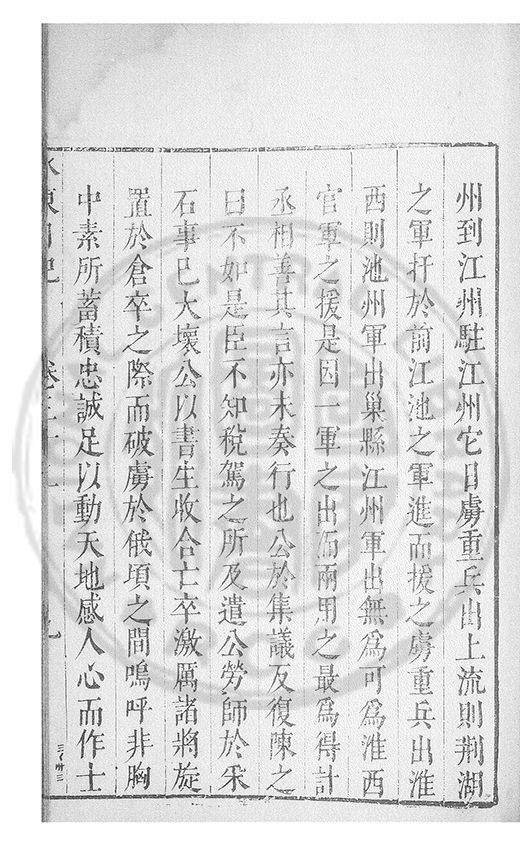 州到江州駐江州它日虜重兵出上流則荆湖
之軍扞於前江池之軍進而援之虜重兵出淮
西則池州軍出巢縣江州軍出無為可為淮西
官軍之援是因一軍之出而兩用之最為得計
丞相善其言亦未奏行也公於集議反復陳之
曰不如是臣不知稅駕之所及遣公勞師於采
石事已大壞公以書生收合亡卒激厲諸將旋
置於倉卒之際而破虜於俄頃之間嗚呼非胸
中素所蓄積忠誠足以動天地感人心而作士
水東日記 卷三十